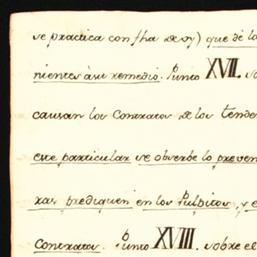 se practica con fha de oy) que de lo
nientes à su remedio. Punto XVII. so
causan los Contratos de los tende
este particular se observe lo preven
ras prediquen en los Pulpitos, y e
Contratos. Punto XVIII. sobre el